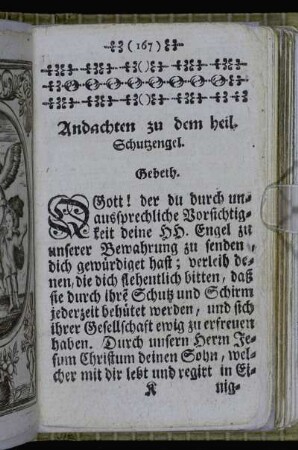 ( 167 )
Andachten zu dem heil.
Schutzengel.
Gebeth.
O Gott! der du durch un-
aussprechliche Vorsichtig-
keit deine HH. Engel zu
unserer Bewahrung zu senden,
dich gewürdiget hast; verleih de-
nen, die dich flehentlich bitten, daß
sie durch ihrē Schutz und Schirm
jederzeit behütet werden, und sich
ihrer Gesellschaft ewig zu erfreuen
haben. Durch unsern Herrn Je-
sum Christum deinen Sohn, wel-
cher mit dir lebt und regirt in Ei-
K nig-